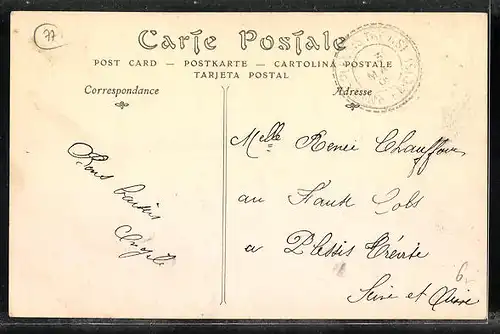 77
Carte Postale
POST CARD — POSTKARTE — CARTOLINA POSTALE
TARJETA POSTAL
Correspondance
Adresse
Bons baisers
Angèle
Melle Renée Chauffour
au
a Plessis
Seine et
6